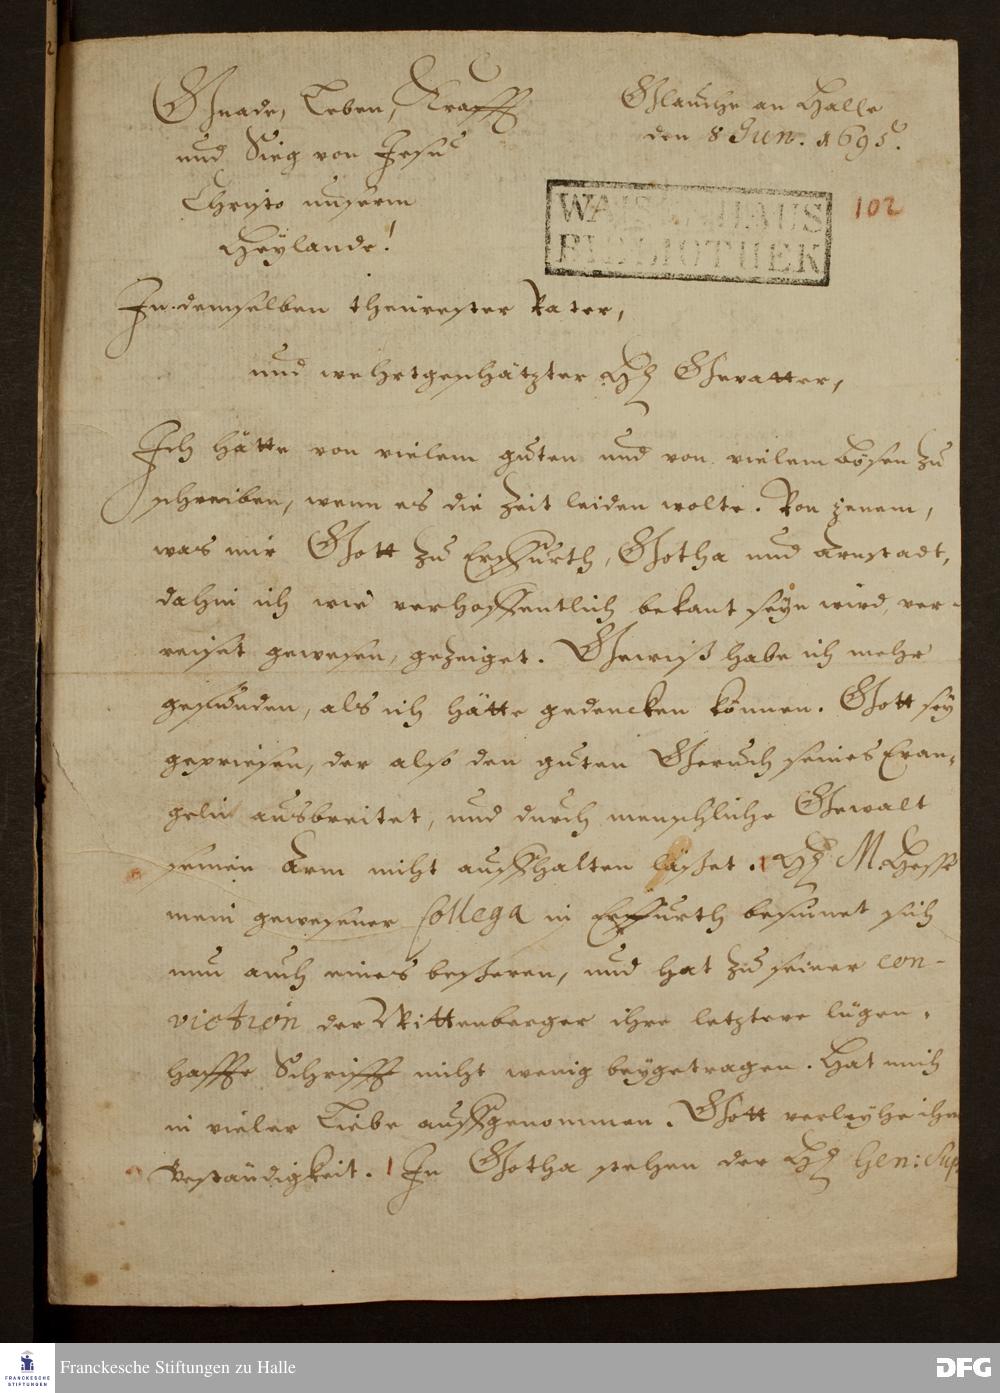 Gnade, Leben, Krafft
und Sieg von Jesu
Christo unserm
Heylande!
Glaucha an Halle
den 8 Jun. 1695.
WAISENHAUS
BIBLIOTHEK
102
In demselben theurester Vater,
und wehrtgeschätzter H. Gevatter,
Ich hätte von vielem guten und von vielem bösen zu
schreiben, wenn es die Zeit leiden wolte. Von jenem,
was mir Gott zu Erffurth, Gotha und Arnstadt,
dahin ich wie verhoffentlich bekant seyn wird, ver-
reiset gewesen, gezeiget. Gewiß habe ich mehr
gefunden, als ich hätte gedencken können. Gott sey
gepriesen, der also den guten Geruch seines Evan-
gelii ausbreitet, und durch menschliche Gewalt
seinen Arm nicht auffhalten läßet. H. M.
mein gewesener Collega in Erffurth besinnet sich
nun auch eines beßeren, und hat zu seiner con-
viction der Wittenberger ihre letztere lügen-
haffte Schrifft nicht wenig beygetragen. Hat mich
in vieler Liebe auffgenommen. Gott verleyhe ihm
Beständigkeit. In Gotha stehen der H. Gen: Sup
Franckesche Stiftungen zu Halle
FRANCKESCHE
STIFTUNGEN
DFG